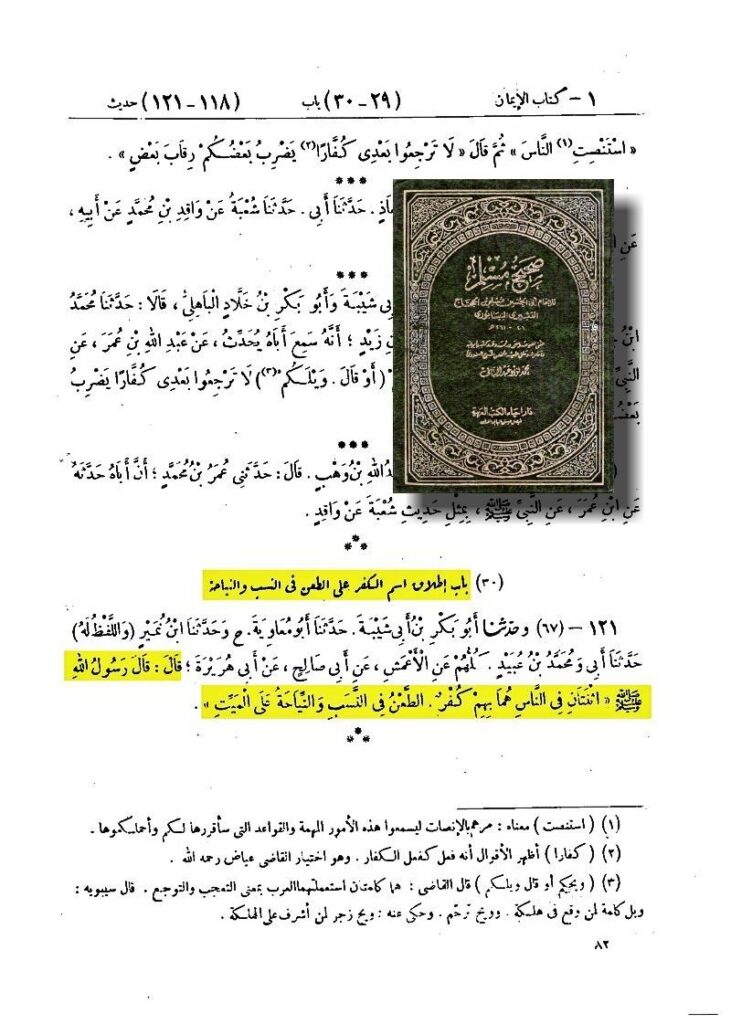 ١ – كتاب الإيمان (٢٩ – ٣٠) باب (١١٨ – ١٢١) حديث
« اسْتَنْصِتِ (١) النَّاسَ » ثُمَّ قَالَ « لَا تَرْجِعُوا بَعْدِى كُفَّارًا (٢) يَضْرِبُ بَعْضُكُمْ رِقَابَ بَعْضٍ » .
***
حَدَّثَنَا أَبِى . حَدَّثَنَا شُعْبَةُ عَنْ وَاقِدِ بْنِ مُحَمَّدٍ عَنْ أَبِيهِ ،
عَنِ
***
شَيْبَةَ وَأَبُو بَكْرِ بْنُ خَلَّادٍ الْبَاهِلِىُّ ، قَالَا : حَدَّثَنَا مُحَمَّدُ
ابْنُ زَيْدٍ ؛ أَنَّهُ سَمِعَ أَبَاهُ يُحَدِّثُ ، عَنْ عَبْدِ اللهِ بْنِ عُمَرَ ، عَنِ
النَّبِىِّ ( أَوْ قَالَ . وَيْلَكُمْ (٣) ) لَا تَرْجِعُوا بَعْدِى كُفَّارًا يَضْرِبُ
***
بْنُ وَهْبٍ . قَالَ : حَدَّثَنِى عُمَرُ بْنُ مُحَمَّدٍ ؛ أَنَّ أَبَاهُ حَدَّثَهُ
عَنِ ابْنِ عُمَرَ ، عَنِ النَّبِىِّ ﷺ ، بِمِثْلِ حَدِيثِ شُعْبَةَ عَنْ وَاقِدٍ .
***
صحيح مسلم
محمد فؤاد عبد الباقي
دار إحياء الكتب العربية
(٣٠) باب إطلاق اسم الكفر على الطعن فى النسب والنياحة
١٢١ – (٦٧) وحَدَّثَنَا أَبُو بَكْرِ بْنُ أَبِى شَيْبَةَ . حَدَّثَنَا أَبُو مُعَاوِيَةَ . ح وَحَدَّثَنَا ابْنُ نُمَيْرٍ (وَاللَّفْظُ لَهُ)
حَدَّثَنَا أَبِى وَمُحَمَّدُ بْنُ عُبَيْدٍ . كُلُّهُمْ عَنِ الْأَعْمَشِ ، عَنْ أَبِى صَالِحٍ ، عَنْ أَبِى هُرَيْرَةَ ؛ قَالَ : قَالَ رَسُولُ اللهِ
ﷺ « اثْنَتَانِ فِى النَّاسِ هُمَا بِهِمْ كُفْرٌ . الطَّعْنُ فِى النَّسَبِ وَالنِّيَاحَةُ عَلَى الْمَيِّتِ » .
***
(١) ( استنصت ) معناه : مرهم بالإنصات ليسمعوا هذه الأمور المهمة والقواعد التى سأقررها لكم وأحملكموها .
(٢) ( كفارا ) أظهر الأقوال أنه فعل كفعل الكفار . وهو اختيار القاضى عياض رحمه الله .
(٣) ( ويحكم أو قال ويلكم ) قال القاضى : هما كلمتان استعملتهما العرب بمعنى التعجب والتوجع . قال سيبويه :
ويل كلمة لمن وقع فى هلكة . وويح ترحّم . وحكى عنه : ويح زجر لمن أشرف على الهلكة .
٨٢